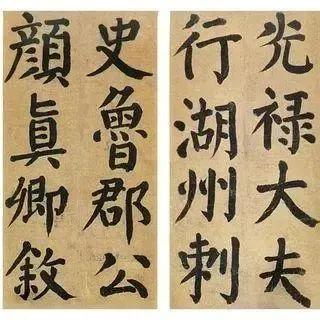 光禄大夫
行湖州刺
史魯郡公
顔真卿敘